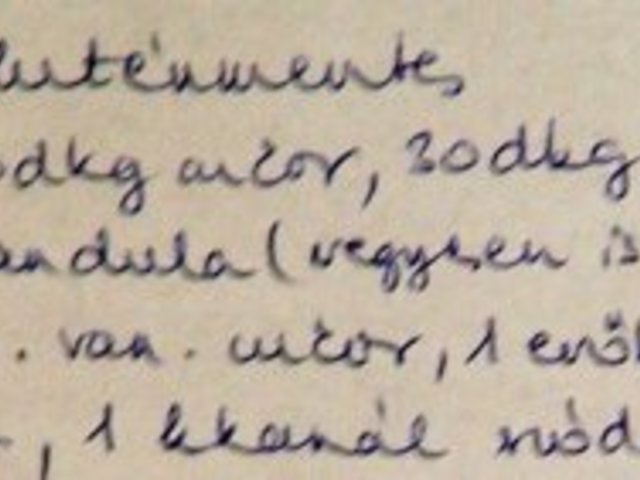 luténmentes
0dkg cucor, 30dkg
andula (vegyesen is
. van. cucor, 1 evők
., 1 kkanál szód